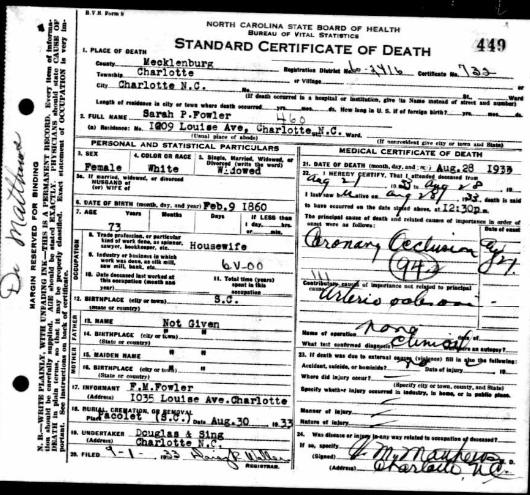 B.V.S Form 8
NORTH CAROLINA STATE BOARD OF HEALTH
BUREAU OF VITAL STATISTICS
STANDARD CERTIFICATE OF DEATH
449
1. PLACE OF DEATH
County Mecklenburg
Registration District No. Certificate No. 733
Township Charlotte or Village
City Charlotte N.C. St. Ward
(If death occurred in a hospital or institution, give its Name instead of street and number)
Length of residence in city or town where death occurred yrs. mos. ds. How long in U. S. if of foreign birth? yrs. mos. ds.
2. FULL NAME Sarah P.Fowler 460
(a) Residence: No. 1209 Louise Ave, Charlotte,N.C. Ward.
(Usual place of abode) (If nonresident give city or town and State)
PERSONAL AND STATISTICAL PARTICULARS
3. SEX 4. COLOR OR RACE 5. Single, Married, Widowed, or Divorced (write the word)
Female White Widowed
5a. If married, widowed, or divorced
HUSBAND of
(or) WIFE of
6. DATE OF BIRTH (month, day, and year) Feb,9 1860
7. AGE Years Months Days If LESS than 1 day, hrs. or min.
73
OCCUPATION
8. Trade, profession, or particular kind of work done, as spinner, sawyer, bookkeeper, etc. Housewife
9. Industry or business in which work was done, as silk mill, saw mill, bank, etc.
10. Date deceased last worked at this occupation (month and year)
11. Total time (years) spent in this occupation
12. BIRTHPLACE (city or town) S.C.
(State or country)
FATHER
13. NAME Not Given
14. BIRTHPLACE (city or town) " "
(State or country)
MOTHER
15. MAIDEN NAME " "
16. BIRTHPLACE (city or town) " "
(State or country)
17. INFORMANT F.M.Fowler
(Address) 1035 Louise Ave.Charlotte
18. BURIAL, CREMATION, OR REMOVAL
Place Pacolet (S.C.) Date Aug.30 1933
19. UNDERTAKER Douglas & Sing
(Address) Charlotte N.C.
20. FILED 9-1 1933
REGISTRAR.
MEDICAL CERTIFICATE OF DEATH
21. DATE OF DEATH (month, day, and year) Aug.28 1933
22. I HEREBY CERTIFY, That I attended deceased from
Aug 21 1933 to Aug 28 1933
I last saw alive on Aug 28 1933 death is said
to have occurred on the date stated above, at 12:30pm
The principal cause of death and related causes of importance in order of onset were as follows:
Coronary Occlusion Aug 27
(94)
Contributory causes of importance not related to principal cause:
Name of operation none
What test confirmed diagnosis? Clinical Was there an autopsy?
23. If death was due to external causes (violence) fill in also the following:
Accident, suicide, or homicide? Date of injury
Where did injury occur?
(Specify city or town, county, and State)
Specify whether injury occurred in industry, in home, or in public place.
Manner of injury
Nature of injury
24. Was disease or injury in any way related to occupation of deceased?
If so, specify
(Signed) V. M. Matthews M. D.
(Address) Charlotte, N.C.
Dr Matthews
MARGIN RESERVED FOR BINDING
N. B.—WRITE PLAINLY, WITH UNFADING INK—THIS IS A PERMANENT RECORD. Every item of information should be carefully supplied. AGE should be stated EXACTLY. PHYSICIANS should state CAUSE OF DEATH in plain terms, so that it may be properly classified. Exact statement of OCCUPATION is very important. See instructions on back of certificate.